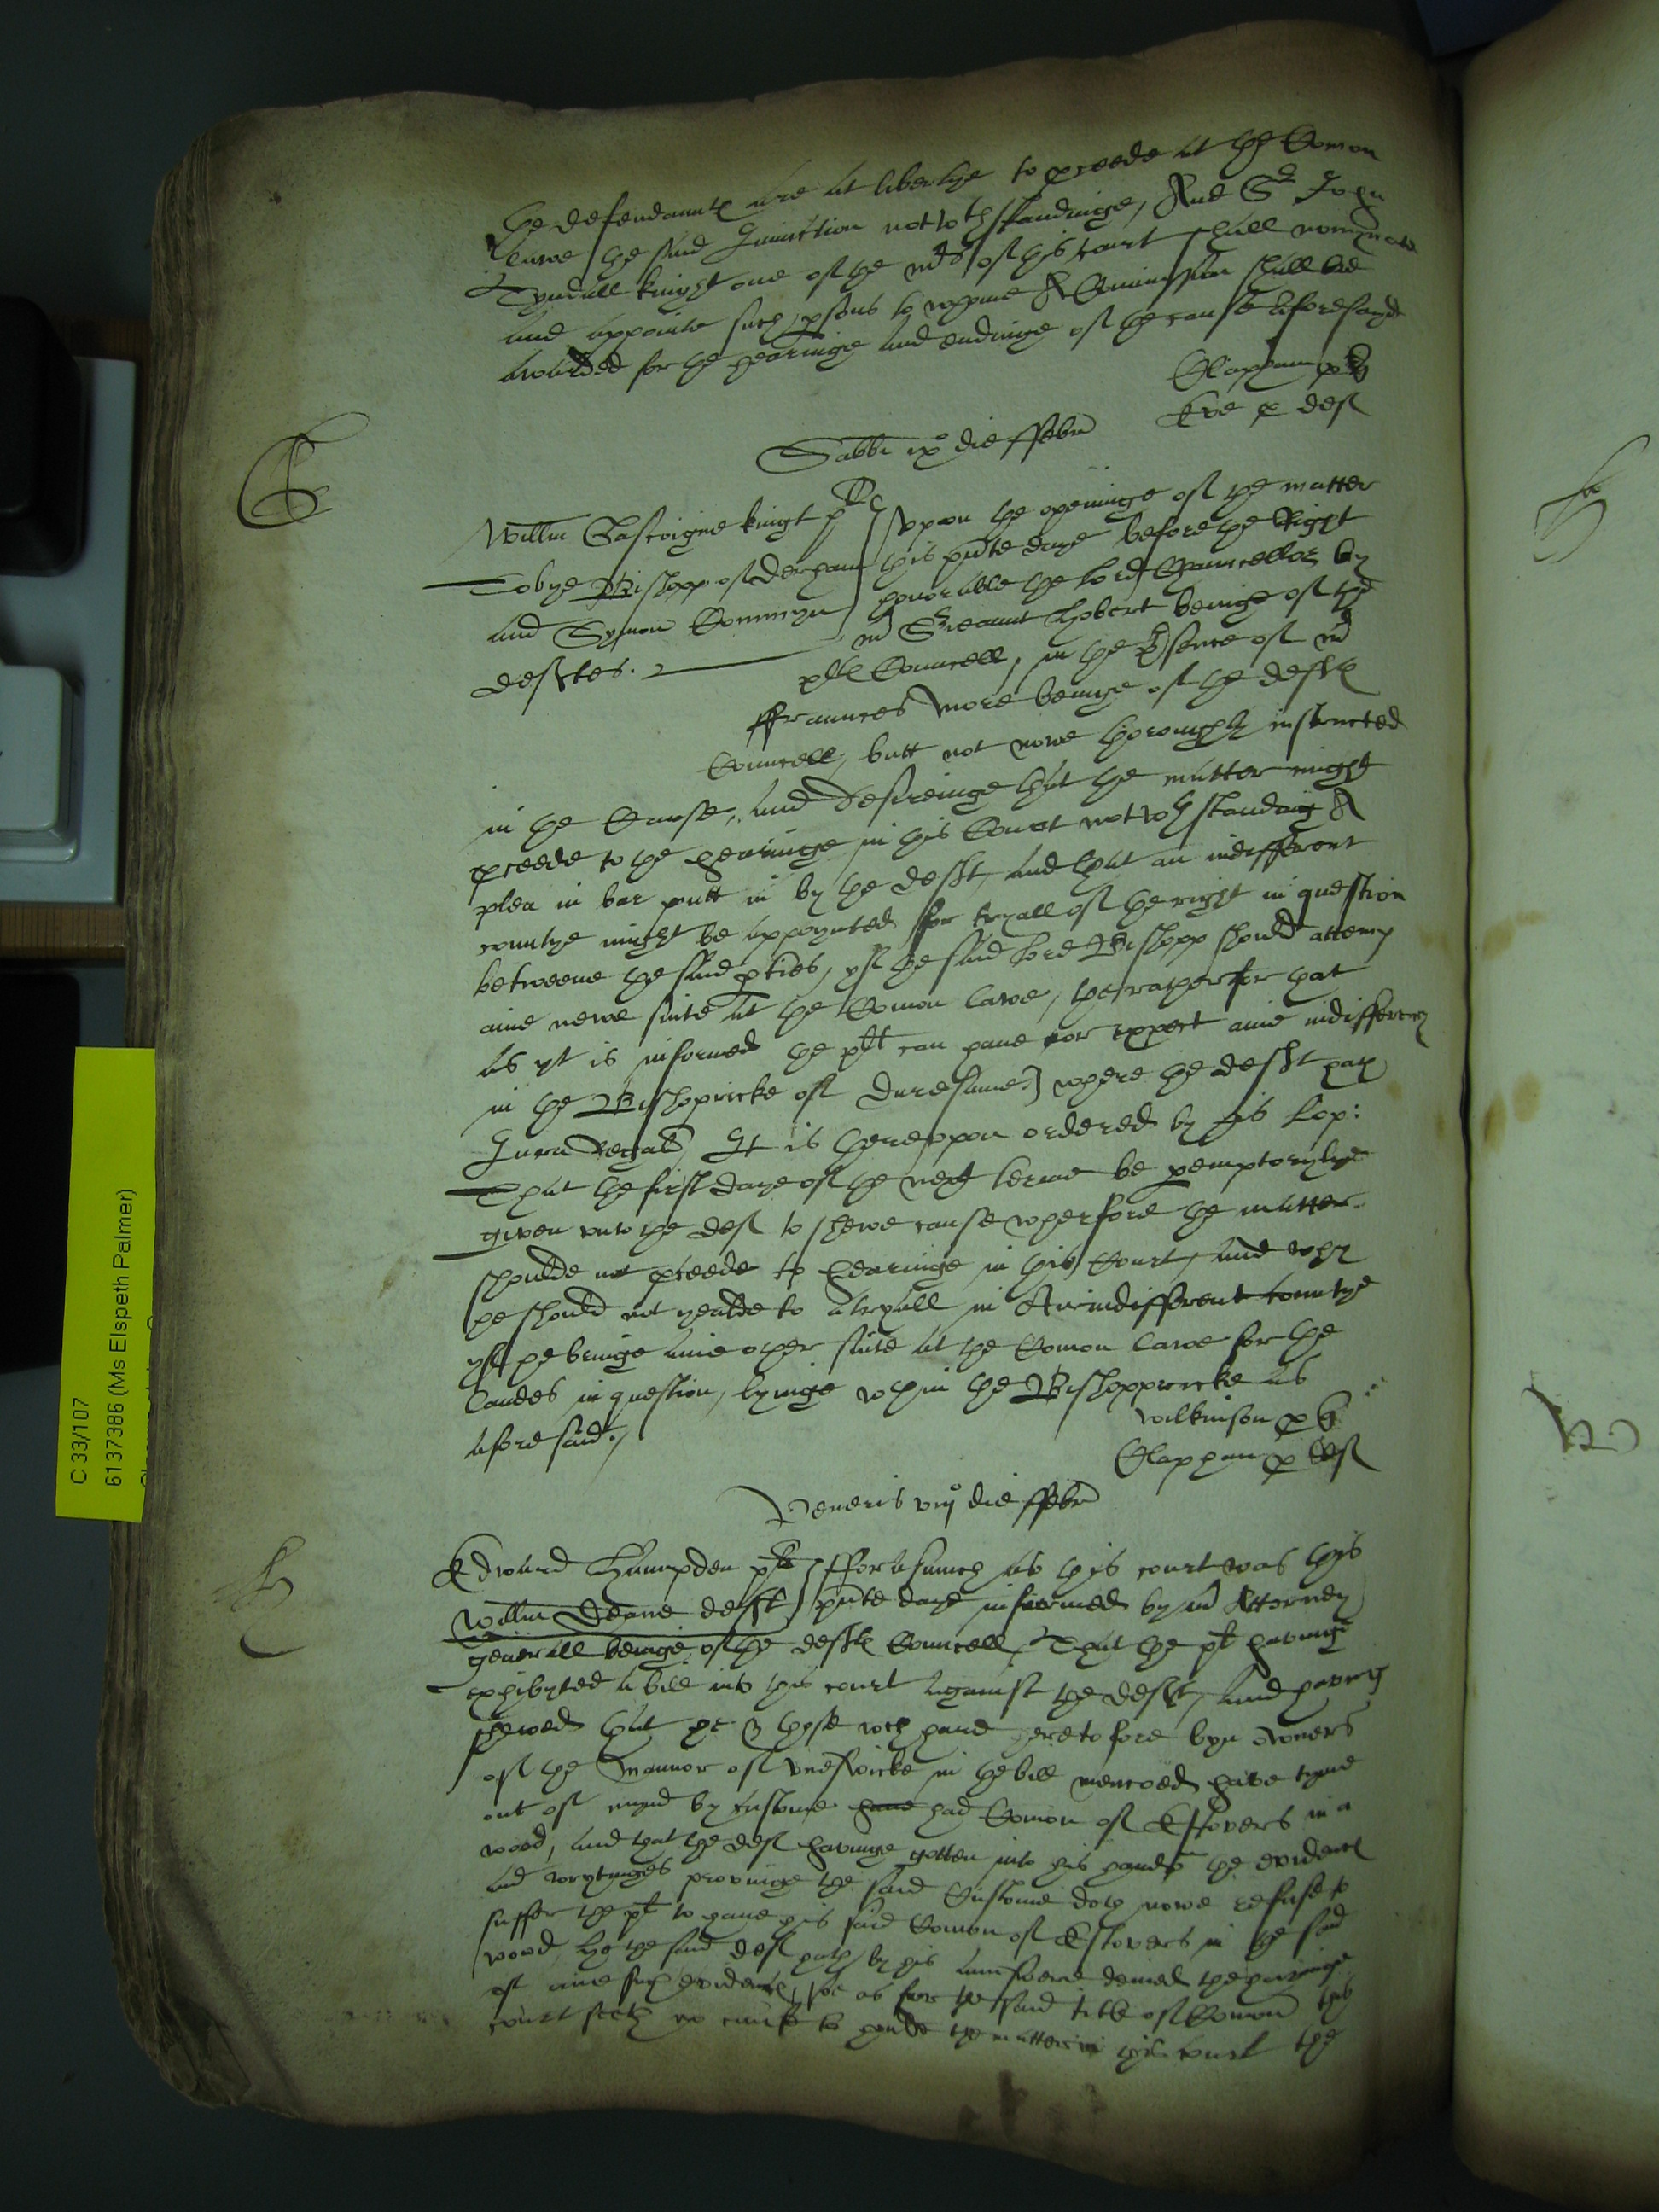 the defendauntes are at libertye to pceede at the Comon
lawe the said Iniunction notwthstandinge, And Sr John
Tyndall knight one of the mrs of this Court shall nomynate
and appointe such psons to whome A Comission shall bee
awarded for the hearinge and endinge of the cause aforesayd
Clapham p q
Eve p def
Sabbi ix° die ffebr
Willm Gascoigne knight plt
Tobye Bishopp of Derham
and Symon Commyn
deftes.
Vpon the openinge of the matter
this pnte daye before the Right
honorable the Lord Chauncellor by
mr Sreaunt Hobert beinge of the
pltes Councell, in the Psence of mr
ffraunces More beinge of the deftes
Councell, butt not nowe thoroughly instructed
in the Cause, and desireinge that the matter might
pceede to the hearinge in this Court notwthstanding A
plea in bar putt in by the deft, and that an indifferent
countye might be appoynted for tryall of the right in question
betweene the said pties, yf the said lord Bishopp should attemp
anie newe suite at the Comon lawe, the rather for that
as yt is informed the plt can haue nor expect anie indifferency
in the Bishopricke of Duresume, where the deft hath
Jura Regalia, It is therevpon ordered by his Lop:
That the first daye of the next terme be pemptorylye
given vnto the def to shewe cause wherfore the matter
shoulde not pceede to hearinge in this Court, and why
he should not yealde to a tryall in An indifferent countye
yf he bringe anie other suite at the Comon lawe for the
landes in question, lyinge wthin the Bishoppricke as
aforesaid.
Wilkinson p q
Clapham p def
Veneris viij° die ffebr
Edward Hampden plt
Willm Deane deft
fforasmuch as this court was this
pnte daye informed by mr Attorney
generall beinge of the deftes Councell, That the plt havinge
exhibyted a bill into this court against the deft, and therby
shewed that he & those wch haue heretofore byn owners
of the Mannor of in the bill mencoed haue tyme
out of mynd by custome had Comon of Estovers in a
wood, and that the def havinge gotten into his handes the evidences
and wrytinges provinge the said Custome doth nowe refuse to
suffer the plt to haue his said Comon of Estovers in the said
wood, the said def hath by his aunswere denied the havinge
of anie such evidences, soe as for the said title of Comon this
court seeth no cause to houlde the matter in this court the
C 33/107
6137386 (Ms Elspeth Palmer)